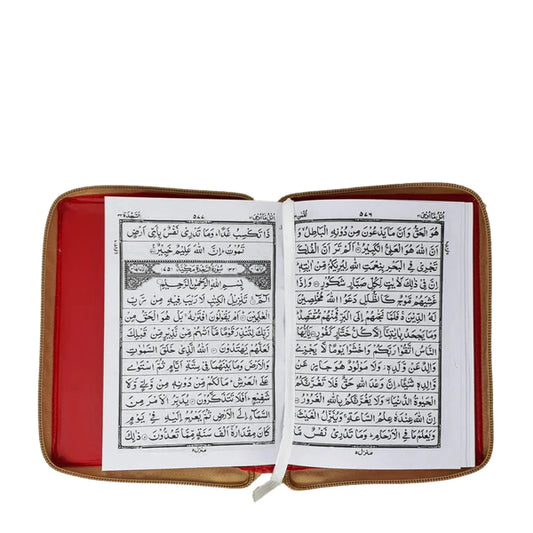 ۵۷۶
هُوَ الْحَقُّ وَاَنَّ مَا يَدْعُوْنَ مِنْ دُوْنِهِ الْبَاطِلُ وَ
اَنَّ اللّٰهَ هُوَ الْعَلِيُّ الْكَبِيْرُ اَلَمْ تَرَ اَنَّ الْفُلْكَ
تَجْرِيْ فِي الْبَحْرِ بِنِعْمَتِ اللّٰهِ لِيُرِيَكُمْ مِّنْ اٰيٰتِهٖ
اِنَّ فِيْ ذٰلِكَ لَاٰيٰتٍ لِّكُلِّ صَبَّارٍ شَكُوْرٍ وَاِذَا
غَشِيَهُمْ مَّوْجٌ كَالظُّلَلِ دَعَوُا اللّٰهَ مُخْلِصِيْنَ
لَهُ الدِّيْنَ فَلَمَّا نَجّٰهُمْ اِلَى الْبَرِّ فَمِنْهُمْ مُّقْتَصِدٌ
وَمَا يَجْحَدُ بِاٰيٰتِنَا اِلَّا كُلُّ خَتَّارٍ كَفُوْرٍ يٰاَيُّهَا
النَّاسُ اتَّقُوْا رَبَّكُمْ وَاخْشَوْا يَوْمًا لَّا يَجْزِيْ
وَالِدٌ عَنْ وَّلَدِهٖ وَلَا مَوْلُوْدٌ هُوَ جَازٍ عَنْ
وَّالِدِهٖ شَيْئًا اِنَّ وَعْدَ اللّٰهِ حَقٌّ فَلَا تَغُرَّنَّكُمُ
الْحَيٰوةُ الدُّنْيَا وَلَا يَغُرَّنَّكُمْ بِاللّٰهِ الْغَرُوْرُ
اِنَّ اللّٰهَ عِنْدَهٗ عِلْمُ السَّاعَةِ وَيُنَزِّلُ الْغَيْثَ
وَيَعْلَمُ مَا فِي الْاَرْحَامِ وَمَا تَدْرِيْ نَفْسٌ مَّا
منزل ۵
۵۷۷
ذَا تَكْسِبُ غَدًا وَمَا تَدْرِيْ نَفْسٌ بِاَيِّ اَرْضٍ
تَمُوْتُ اِنَّ اللّٰهَ عَلِيْمٌ خَبِيْرٌ
سُوْرَةُ السَّجْدَةِ مَكِّيَّةٌ
بِسْمِ اللّٰهِ الرَّحْمٰنِ الرَّحِيْمِ
الٓمّٓ تَنْزِيْلُ الْكِتٰبِ لَا رَيْبَ فِيْهِ مِنْ رَّبِّ
الْعٰلَمِيْنَ اَمْ يَقُوْلُوْنَ افْتَرٰىهُ بَلْ هُوَ الْحَقُّ مِنْ
رَّبِّكَ لِتُنْذِرَ قَوْمًا مَّا اَتٰىهُمْ مِّنْ نَّذِيْرٍ مِّنْ قَبْلِكَ
لَعَلَّهُمْ يَهْتَدُوْنَ اَللّٰهُ الَّذِيْ خَلَقَ السَّمٰوٰتِ
وَالْاَرْضَ وَمَا بَيْنَهُمَا فِيْ سِتَّةِ اَيَّامٍ ثُمَّ اسْتَوٰى
عَلَى الْعَرْشِ مَا لَكُمْ مِّنْ دُوْنِهٖ مِنْ وَّلِيٍّ وَّلَا
شَفِيْعٍ اَفَلَا تَتَذَكَّرُوْنَ يُدَبِّرُ الْاَمْرَ مِنَ
السَّمَآءِ اِلَى الْاَرْضِ ثُمَّ يَعْرُجُ اِلَيْهِ فِيْ يَوْمٍ
كَانَ مِقْدَارُهٗ اَلْفَ سَنَةٍ مِّمَّا تَعُدُّوْنَ ذٰلِكَ
منزل ۵